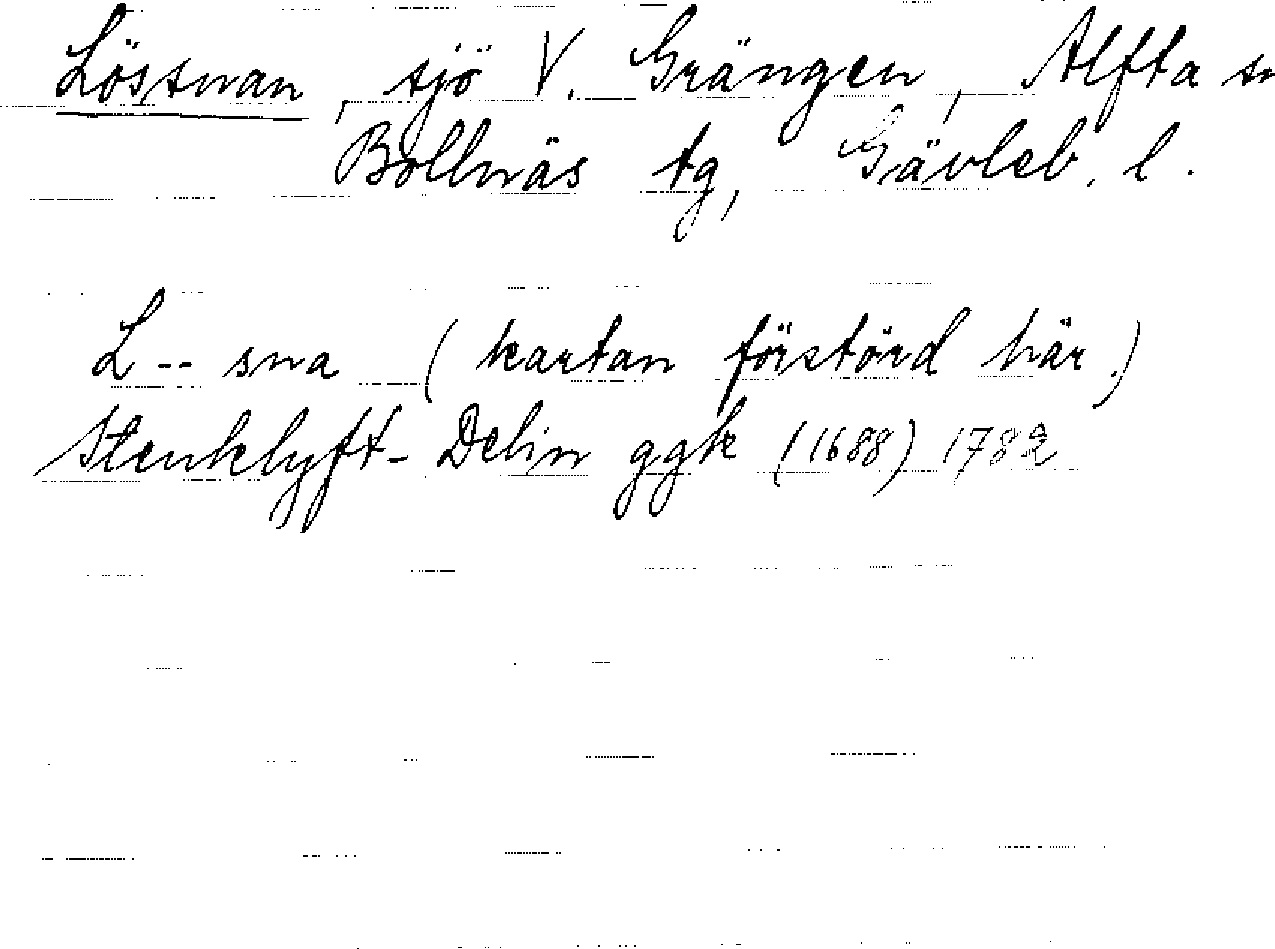 Lössnan, sjö V. Grängen, Alfta sn
Bollnäs tg, Gävleb. l.
L -- sna (kartan förstörd här.)
Stenklyft- Delin ggk (1688) 1782